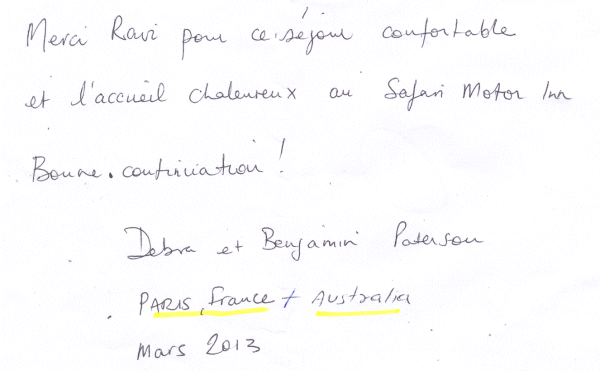 Merci Ravi pour ce séjour confortable
et l'accueil chaleureux au Safari Motor Inn
Bonne continuation !
Debra et Benjamin Paterson
PARIS, France + Australia
Mars 2013